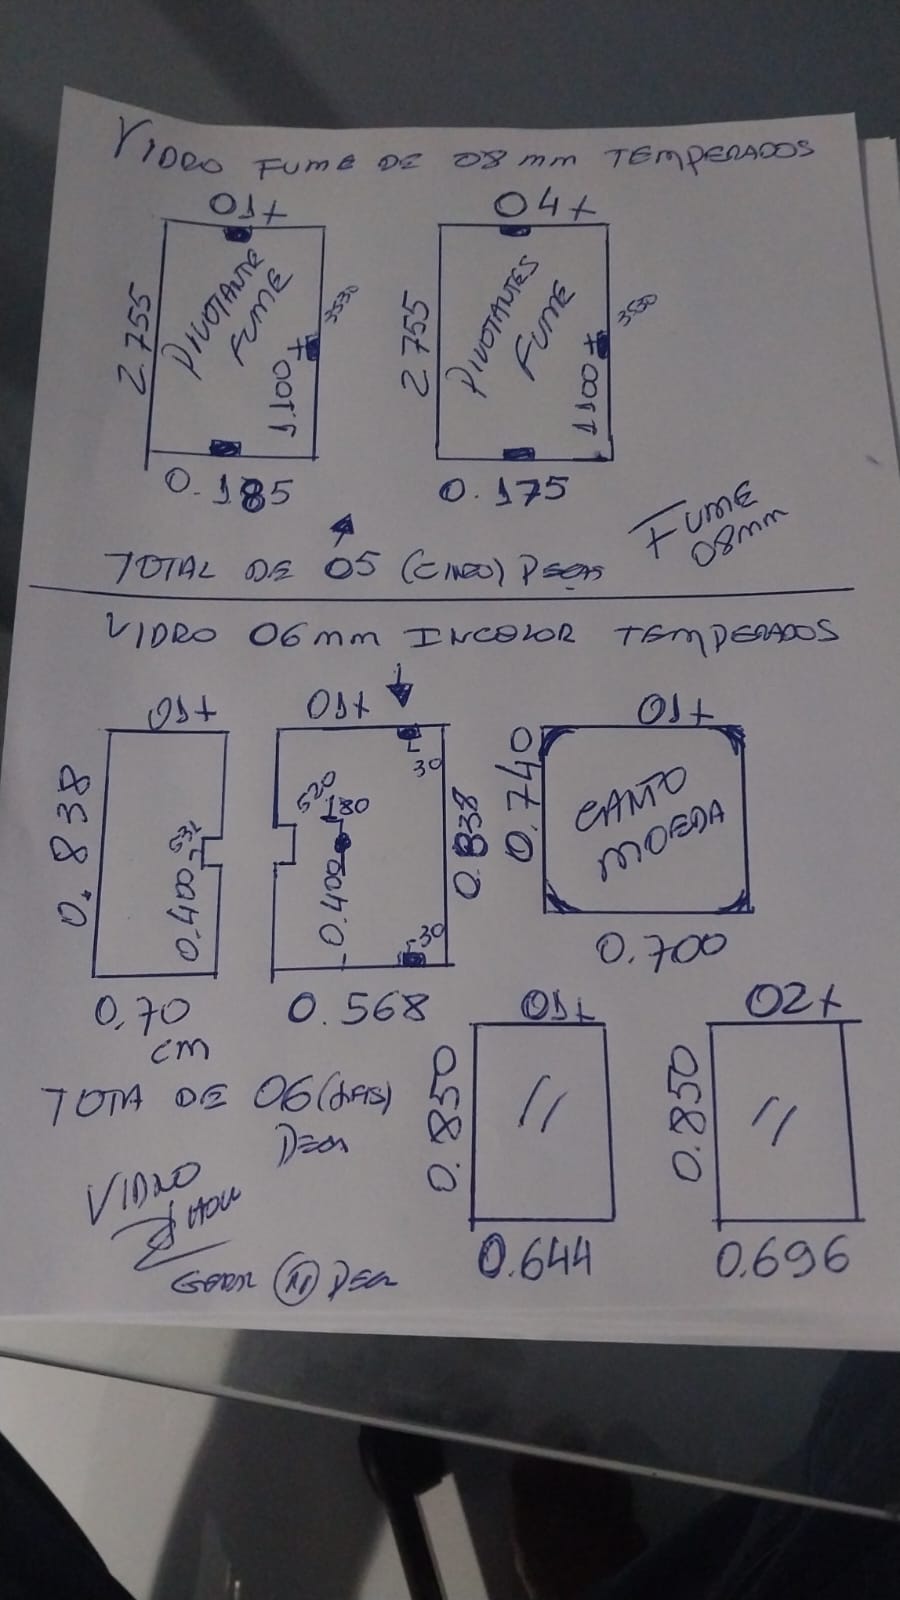 VIDRO FUME DE 08mm TEMPERADOS
01+
04+
2.755
PIVOTANTE
FUME
3530
1100+
0.185
2.755
PIVOTANTES
FUME
3530
1100+
0.175
FUME
08mm
TOTAL DE 05 (CINCO) PEÇAS
VIDRO 06mm INCOLOR TEMPERADOS
01+
0.838
532
0.400
0,70
cm
01+
30
520
180
0.400
0.838
30
0.568
01+
0.740
CANTO
MOEDA
0.700
TOTA DE 06
01+
0.850
0.644
02+
0.850
0.696
VIDRO